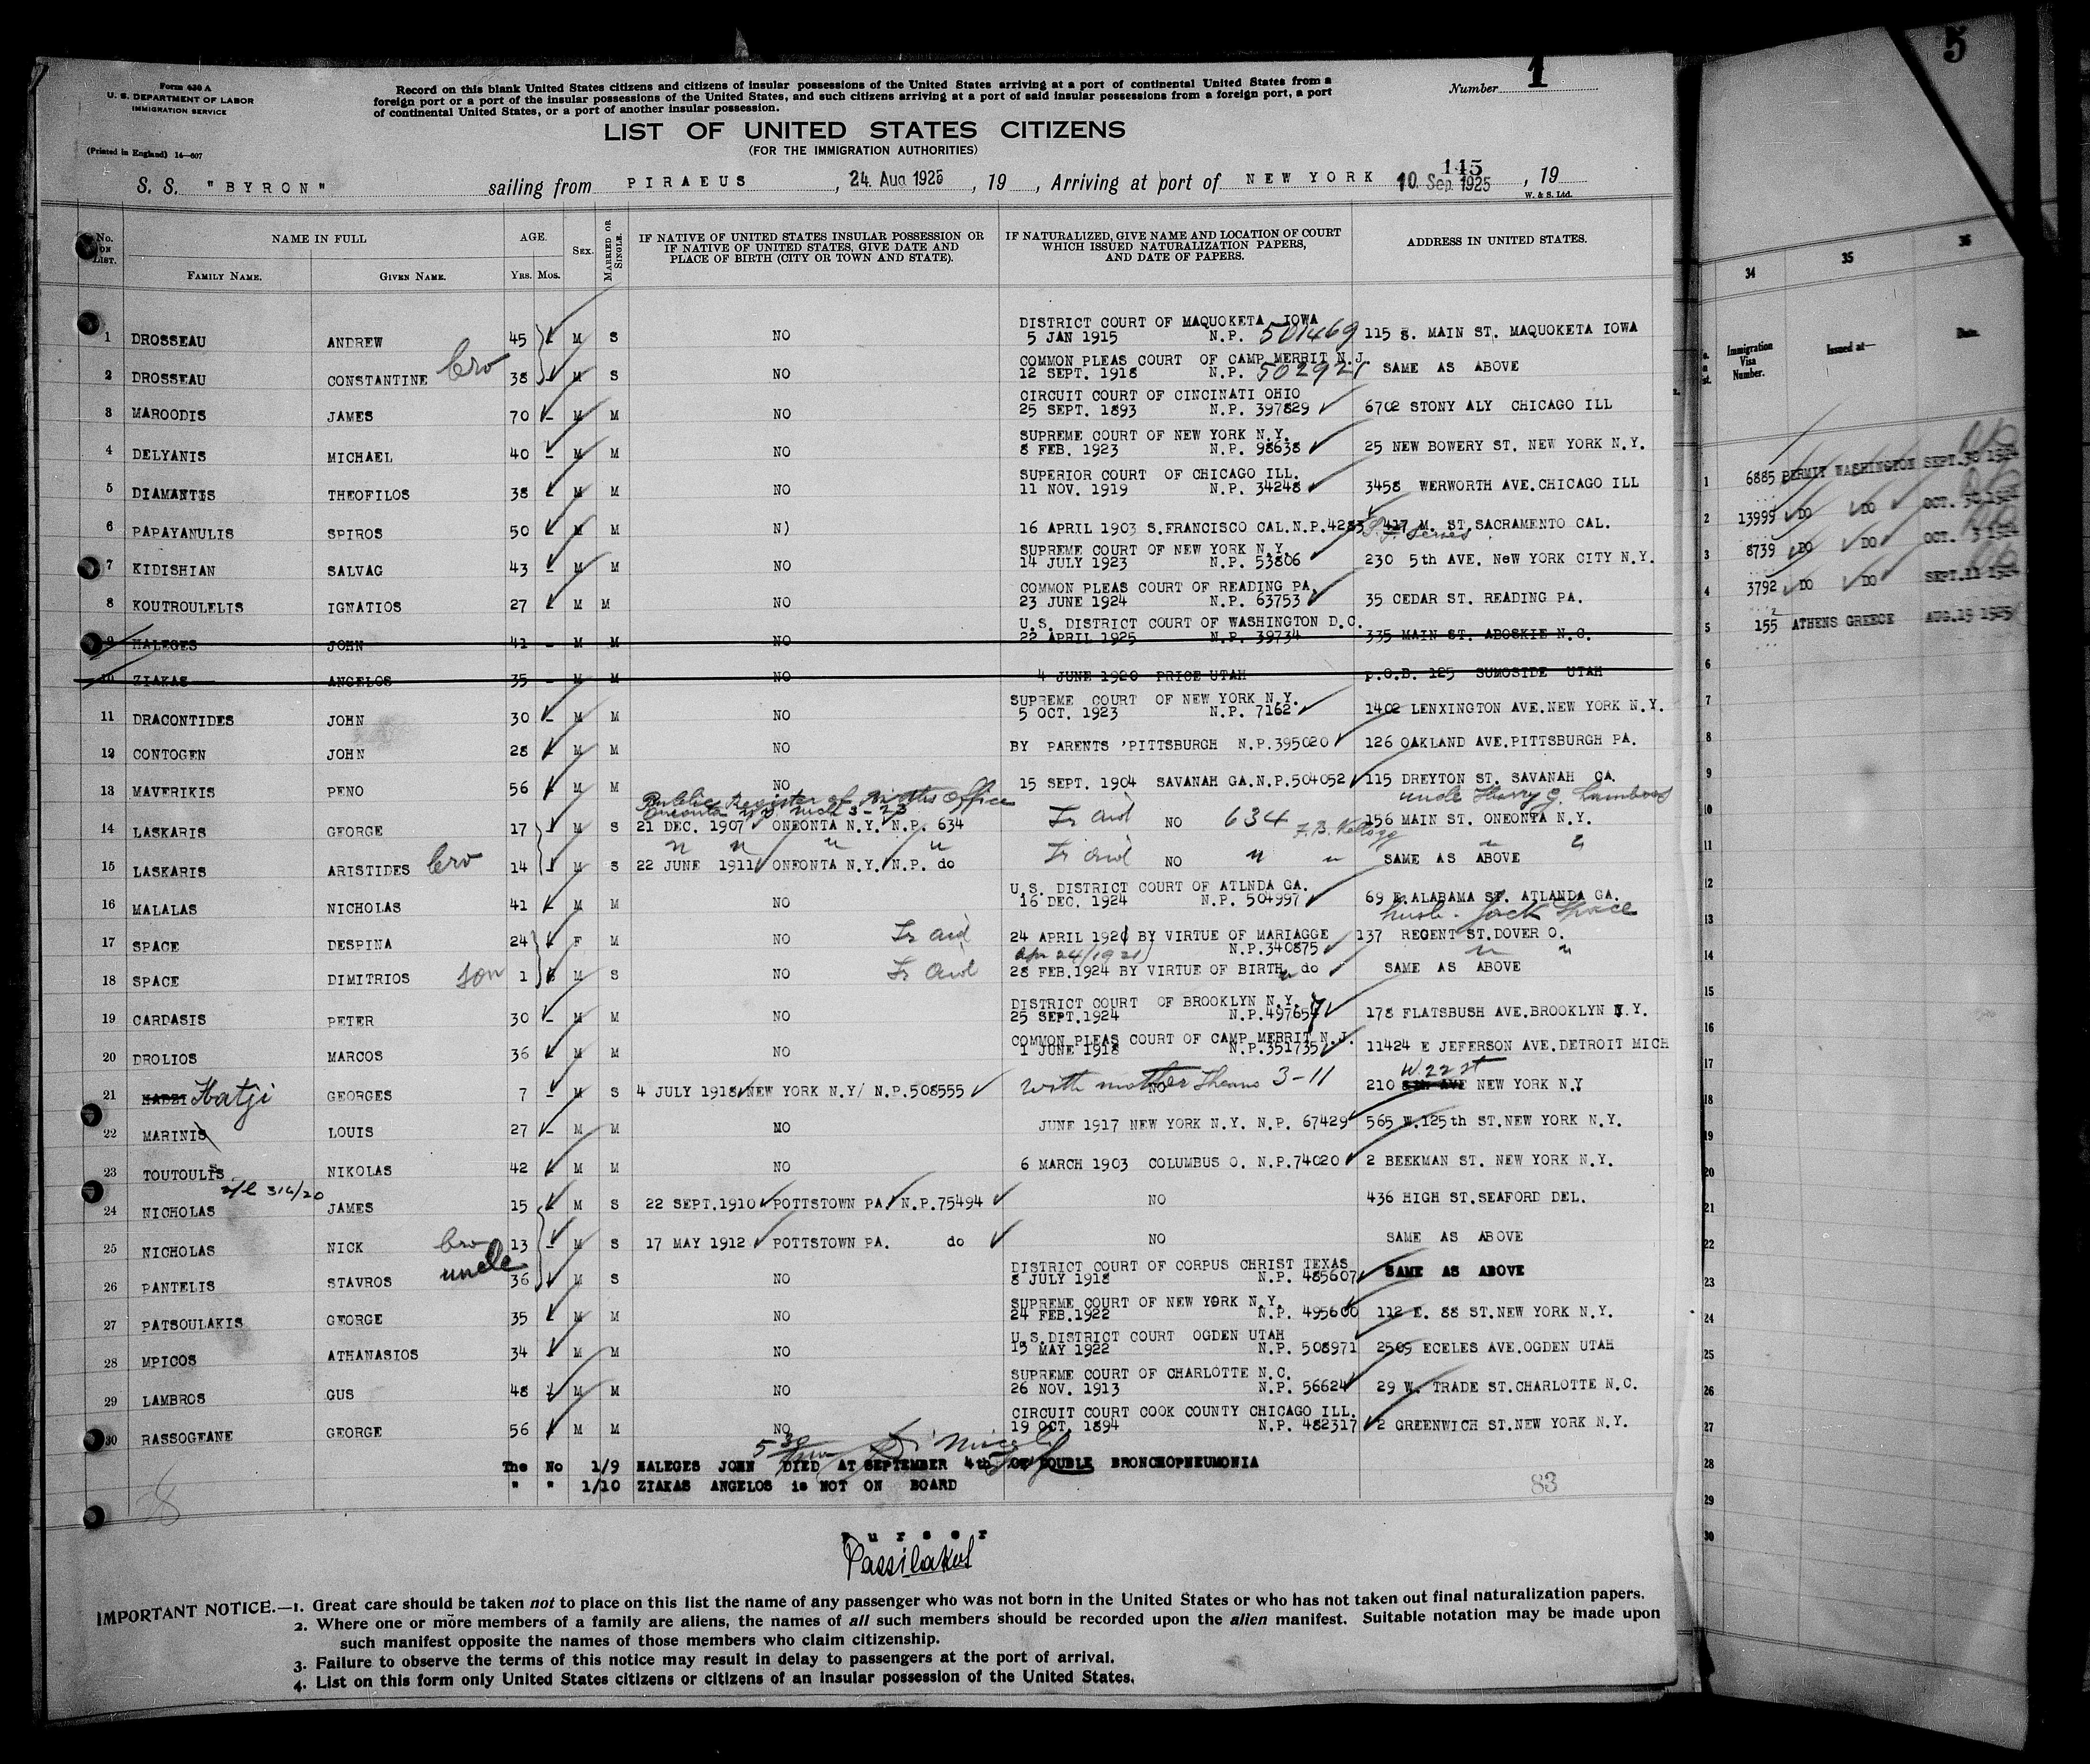 Form 630 A
U. S. DEPARTMENT OF LABOR
IMMIGRATION SERVICE
(Printed in England) 14—607
Record on this blank United States citizens and citizens of insular possessions of the United States arriving at a port of continental United States from a
foreign port or a port of the insular possessions of the United States, and such citizens arriving at a port of said insular possessions from a foreign port, a port
of continental United States, or a port of another insular possession.
Number 1
LIST OF UNITED STATES CITIZENS
(FOR THE IMMIGRATION AUTHORITIES)
115
S. S. "BYRON" sailing from PIRAEUS, 24. Aug 1925, 19 , Arriving at port of NEW YORK 10. Sep 1925, 19
W. & S. Ltd.
No. ON LIST. NAME IN FULL AGE. SEX. MARRIED OR SINGLE. IF NATIVE OF UNITED STATES INSULAR POSSESSION OR IF NATIVE OF UNITED STATES, GIVE DATE AND PLACE OF BIRTH (CITY OR TOWN AND STATE). IF NATURALIZED, GIVE NAME AND LOCATION OF COURT WHICH ISSUED NATURALIZATION PAPERS, AND DATE OF PAPERS. ADDRESS IN UNITED STATES.
FAMILY NAME. GIVEN NAME. YRS. MOS.
DISTRICT COURT OF MAQUOKETA IOWA
1 DROSSEAU ANDREW 45 M S NO 5 JAN 1915 N.P. 501469 115 S. MAIN ST. MAQUOKETA IOWA
COMMON PLEAS COURT OF CAMP MERRIT N.J.
2 DROSSEAU CONSTANTINE bro 38 - M S NO 12 SEPT. 1918 N.P. 502921 SAME AS ABOVE
CIRCUIT COURT OF CINCINATI OHIO
3 MAROODIS JAMES 70 - M M NO 25 SEPT. 1893 N.P. 397829 6702 STONY ALY CHICAGO ILL
SUPREME COURT OF NEW YORK N.Y.
4 DELYANIS MICHAEL 40 - M M NO 8 FEB. 1923 N.P. 98638 25 NEW BOWERY ST. NEW YORK N.Y.
SUPERIOR COURT OF CHICAGO ILL.
5 DIAMANTIS THEOFILOS 38 - M M NO 11 NOV. 1919 N.P. 34248 3458 WERWORTH AVE.CHICAGO ILL
6 PAPAYANULIS SPIROS 50 M M N) 16 APRIL 1903 S.FRANCISCO CAL.N.P.4283 417 M. ST.SACRAMENTO CAL.
SUPREME COURT OF NEW YORK N.Y.
7 KIDISHIAN SALVAG 43 - M M NO 14 JULY 1923 N.P. 53806 230 5th AVE. NeW YORK CITY N.Y.
COMMON PLEAS COURT OF READING PA.
8 KOUTROULELIS IGNATIOS 27 M M NO 23 JUNE 1924 N.P. 63753 35 CEDAR ST. READING PA.
U.S. DISTRICT COURT OF WASHINGTON D.C.
9 MALEGES JOHN 41 - M M NO 22 APRIL 1925 N.P. 39734 335 MAIN ST. ABOSKIE N.C.
10 ZIAKAS ANGELOS 35 - M M NO 4 JUNE 1920 PRICE UTAH p.O.B. 125 SUMOSIDE UTAH
SUPREME COURT OF NEW YORK N.Y.
11 DRACONTIDES JOHN 30 - M M NO 5 OCT. 1923 N.P. 7162 1402 LENXINGTON AVE.NEW YORK N.Y.
12 CONTOGEN JOHN 28 M M NO BY PARENTS 'PITTSBURGH N.P.395020 126 OAKLAND AVE.PITTSBURGH PA.
13 MAVERIKIS PENO 56 M M NO 15 SEPT. 1904 SAVANAH GA.N.P.504052 115 DREYTON ST. SAVANAH GA.
Public Register of Births Office uncle Harry G. Lambros
14 LASKARIS GEORGE 17 - M S 21 DEC. 1907 ONEONTA N.Y. N.P. 634 NO 634 F.B. Kellogg 156 MAIN ST. ONEONTA N.Y.
" " " "
15 LASKARIS ARISTIDES bro 14 - M S 22 JUNE 1911 ONEONTA N.Y. N.P. do NO " " SAME AS ABOVE
U.S. DISTRICT COURT OF ATLNDA GA.
16 MALALAS NICHOLAS 41 - M M NO 16 DEC. 1924 N.P. 504997 69 E.ALABAMA ST. ATLANDA GA.
husb. Jack Space
17 SPACE DESPINA 24 F M NO 24 APRIL 1921 BY VIRTUE OF MARIAGGE 137 REGENT ST.DOVER O.
Apr 24/1921) N.P.340875
18 SPACE DIMITRIOS son 1 6 M S NO 28 FEB.1924 BY VIRTUE OF BIRTH do SAME AS ABOVE
DISTRICT COURT OF BROOKLYN N.Y.
19 CARDASIS PETER 30 - M M NO 25 SEPT.1924 N.P.497657 178 FLATSBUSH AVE.BROOKLYN N.Y.
COMMON PLEAS COURT OF CAMP MERRIT N.J.
20 DROLIOS MARCOS 36 M M NO 1 JUNE 1918 N.P.351735 11424 E JEFERSON AVE.DETROIT MICH
W. 22 st
21 HADZI Hatji GEORGES 7 - M S 4 JULY 1918 NEW YORK N.Y/ N.P.508555 with mother 3-11 NO 210 8th AVE NEW YORK N.Y
22 MARINIS LOUIS 27 - M M NO JUNE 1917 NEW YORK N.Y. N.P. 67429 565 W.125th ST.NEW YORK N.Y.
23 TOUTOULIS NIKOLAS 42 M M NO 6 MARCH 1903 COLUMBUS O. N.P.74020 2 BEEKMAN ST. NEW YORK N.Y.
316/20
24 NICHOLAS JAMES 15 M S 22 SEPT.1910 POTTSTOWN PA. N.P.75494 NO 436 HIGH ST.SEAFORD DEL.
25 NICHOLAS NICK bro 13 - M S 17 MAY 1912 POTTSTOWN PA. do NO SAME AS ABOVE
DISTRICT COURT OF CORPUS CHRIST TEXAS
26 PANTELIS STAVROS uncle 36 M S NO 8 JULY 1918 N.P. 485607 SAME AS ABOVE
SUPREME COURT OF NEW YORK N.Y.
27 PATSOULAKIS GEORGE 35 M M NO 24 FEB.1922 N.P. 495600 112 E. 88 ST.NEW YORK N.Y.
U.S.DISTRICT COURT OGDEN UTAH
28 MPICOS ATHANASIOS 34 M M NO 15 MAY 1922 N.P. 508971 2509 ECELES AVE.OGDEN UTAH
SUPREME COURT OF CHARLOTTE N.C.
29 LAMBROS GUS 48 M M NO 26 NOV. 1913 N.P. 56624 29 W. TRADE ST.CHARLOTTE N.C.
CIRCUIT COURT COOK COUNTY CHICAGO ILL.
30 RASSOGEANE GEORGE 56 M M NO 19 OCT. 1894 N.P. 482317 2 GREENWICH ST.NEW YORK N.Y.
The No 1/9 MALEGES JOHN DIED AT SEPTEMBER 4th OF DOUBLE BRONCHOPNEUMONIA
" " 1/10 ZIAKAS ANGELOS is NOT ON BOARD
83
Purser
IMPORTANT NOTICE.—1. Great care should be taken not to place on this list the name of any passenger who was not born in the United States or who has not taken out final naturalization papers.
2. Where one or more members of a family are aliens, the names of all such members should be recorded upon the alien manifest. Suitable notation may be made upon
such manifest opposite the names of those members who claim citizenship.
3. Failure to observe the terms of this notice may result in delay to passengers at the port of arrival.
4. List on this form only United States citizens or citizens of an insular possession of the United States.
5
34 35 36
Immigration Visa Number. Issued at— Date.
1 6885 PERMIT WASHINGTON SEPT.30 1924
2 13999 DO DO OCT. 30 1924
3 8739 DO DO OCT. 3 1924
4 3792 DO DO SEPT.11 1924
5 155 ATHENS GREECE AUG.19 1925
6
7
8
9
10
11
12
13
14
15
16
17
18
19
20
21
22
23
24
25
26
27
28
29
30